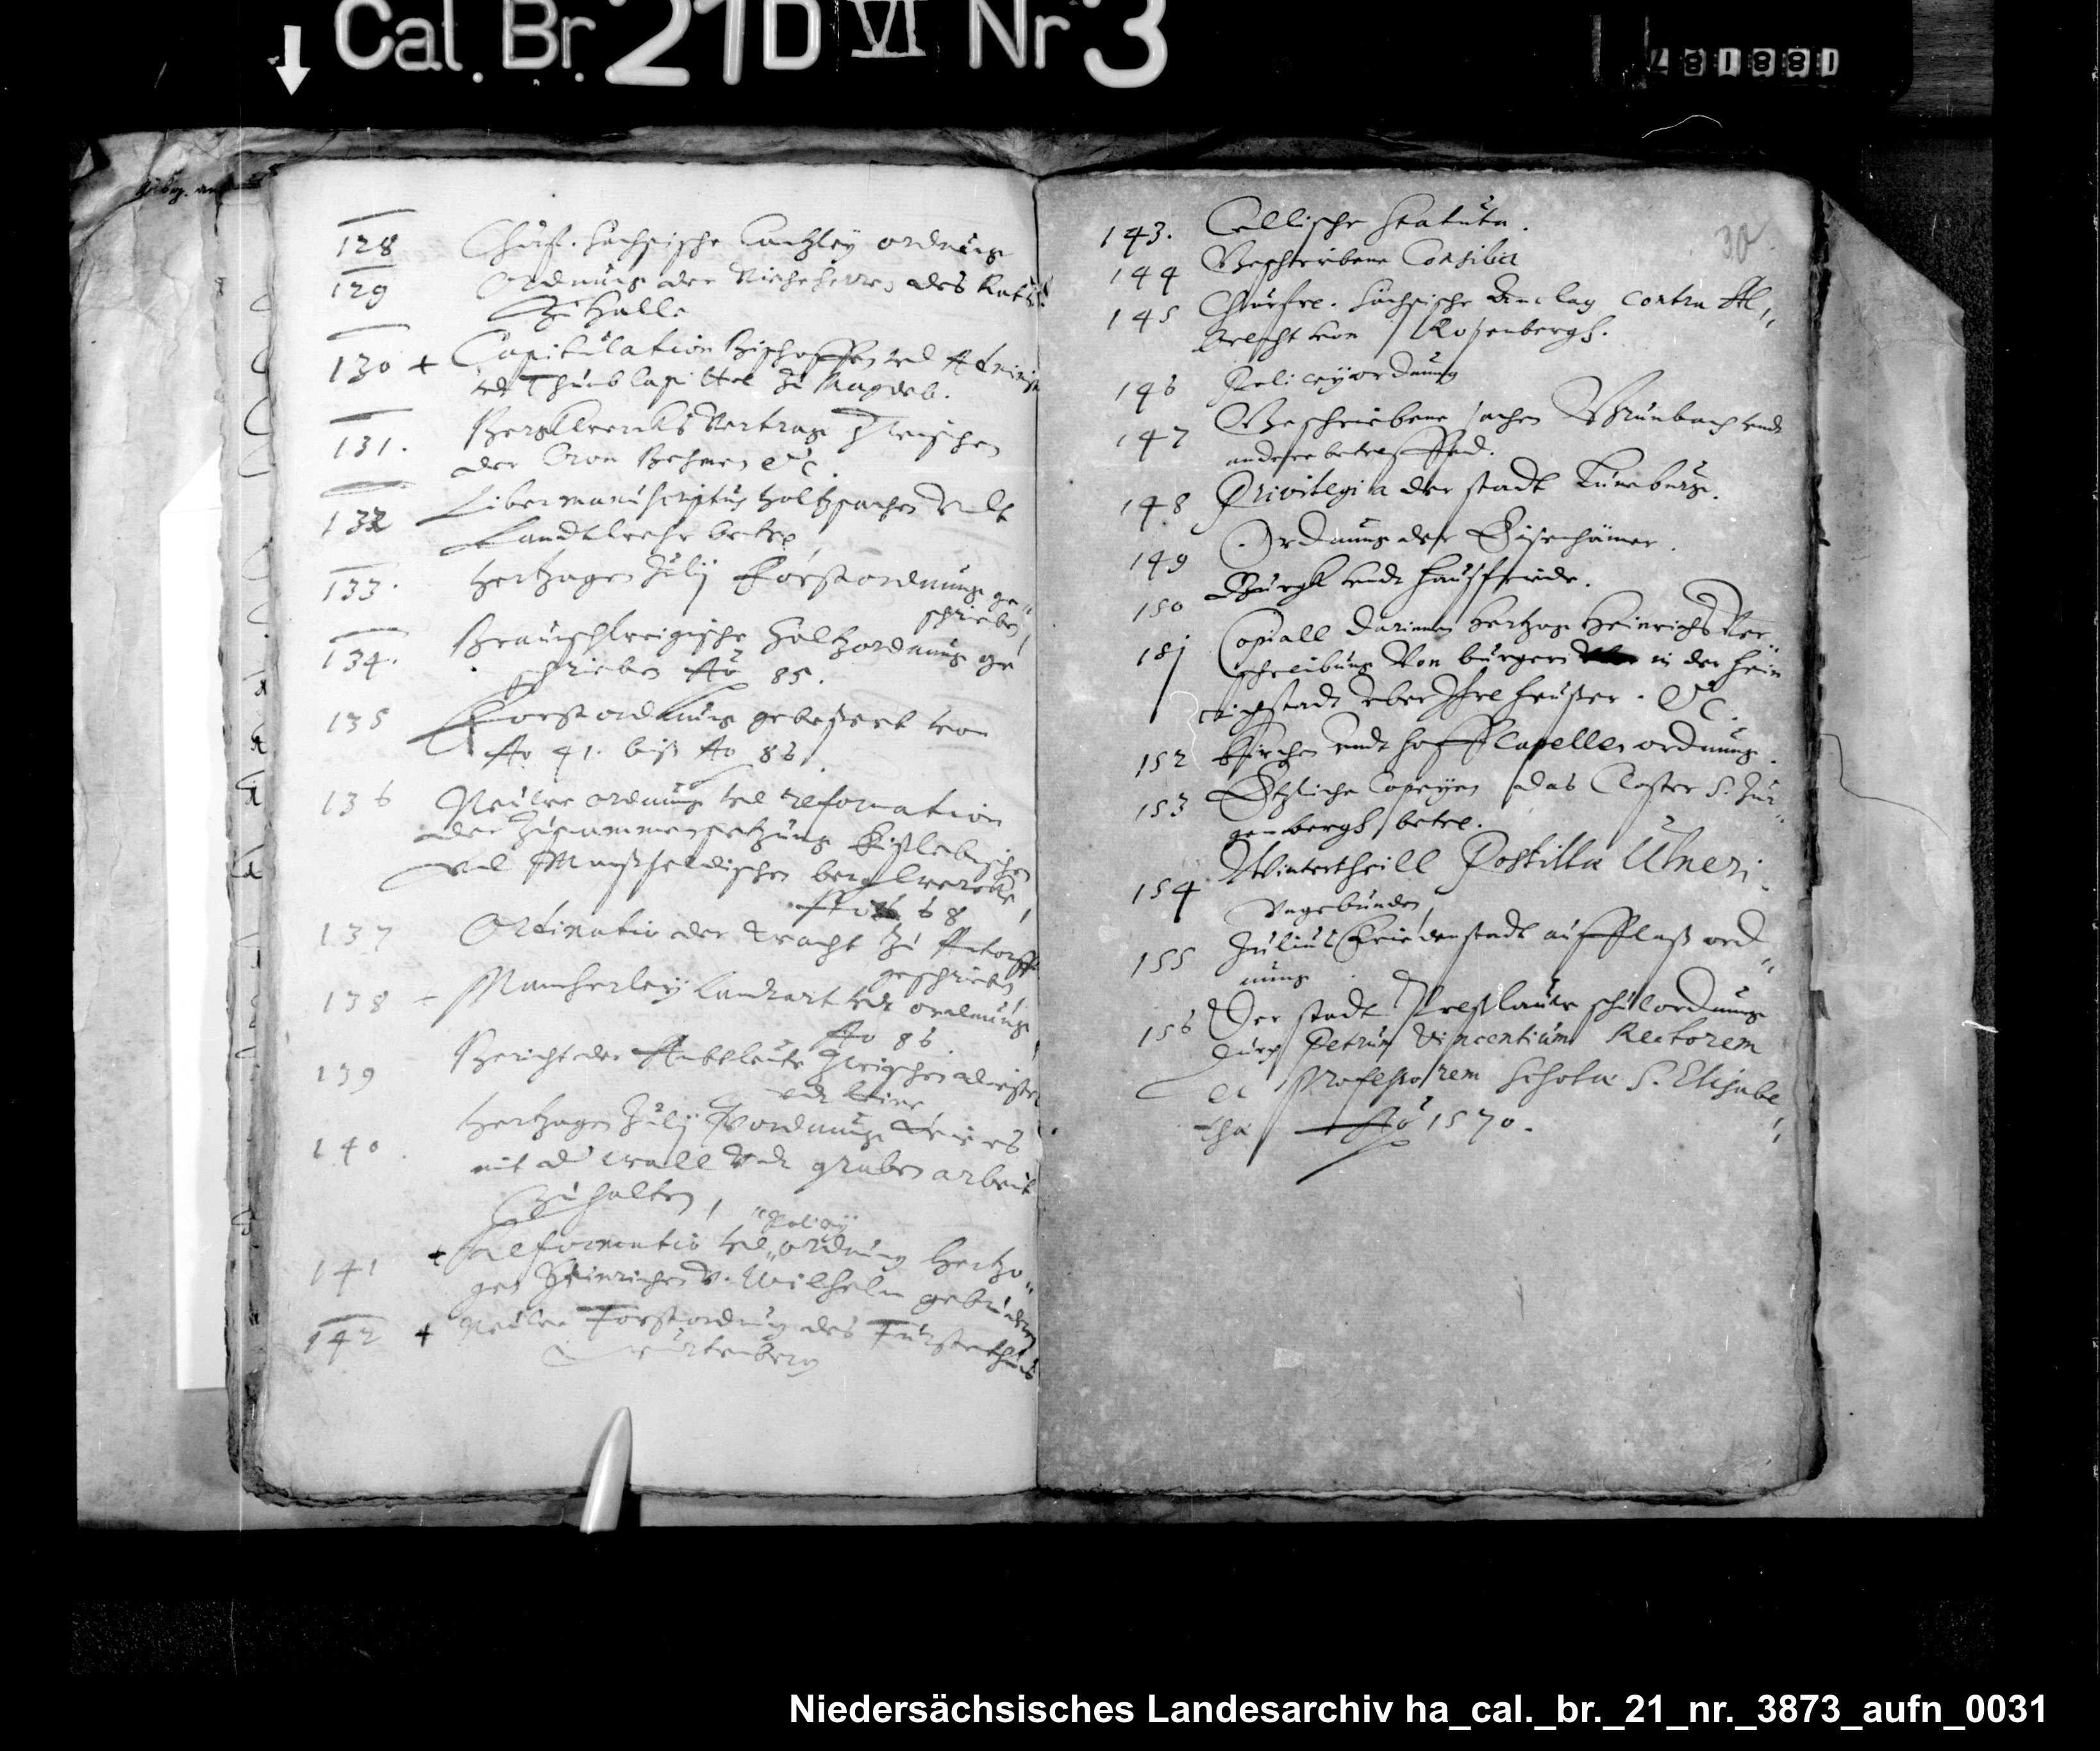 Cal. Br. 21 D VI Nr 3
128 Churf. Sächsische Cantzley ordnung
129 Ordnung der des Raths
Zu Halle
130 + Capitulation Bischoffen vnd
Thumb Capittel zu Magdeb.
131. Bergkwercks Vertrag Zwischen
der Cron Behmen etc.
132 Liber manuscriptus holtzsachen vndt
Landtwehr betre,
133. Hertzogen Julij Forstordnung ge„
schrieben
134. Braunschweigische Holtzordnung ge
schrieben Ao 85.
135 Forstordnung gebessert von
Ao 41. biß Ao 86.
136 Neuwe ordnung vnd reformation
der Zusammensetzung Eißlebischen
vnd Manßfeldischen bergkwercke,
Ao 68
137 Ordinatio der wacht zu Antorff
geschrieben
138 Mancherley Landtart vnd ordnung
Ao 86.
139 Bericht der Ambtleute Zwischen
vndt Leine
140. Hertzogen Julij Ordnung wie es
mit d wall vndt graben arbeit
Zu halten,
"Policey
141 + Reformatio vnd „ ordnung Hertzo„
gen Heinrichen v. Wilhelm gebrüdern
142 + Neuwe Forstordnung des Fürstenthumbs
Wurtenberg
30
143. Cellische Statuta.
144 Beschriebene Consilia
145 Churfre. Sächsische Anclag contra Al„
brecht von Rosenbergk.
146 Policeyordnung
147 Beschriebene sachen Grunbach vndt
andere betreffend.
148 Privilegia der stadt Luneburg.
149 Ordnung der Eisenhämer.
150 Burgk vndt hausfriede.
151 Copiall darinnen Hertzog Heinrichs Ver„
schreibung Von burgern in der Hein
richstadt vber Ihre heußer. etc.
152 Kirchen vndt hoff Capellen ordnung.
153 Etzliche Copeyen das Closter S. Jür„
genbergk betre.
154 Wintertheill Postilla Ulneri.
Vngebunden,
155 Julius Friedenstadt aufflaß ord„
nung
156 Der stadt Preßlauw schulordnung
durch Petrum Vincentium Rectorem
et Professorem Schola S. Elisabe„
tha Ao 1570.
Niedersächsisches Landesarchiv ha_cal._br._21_nr._3873_aufn_0031